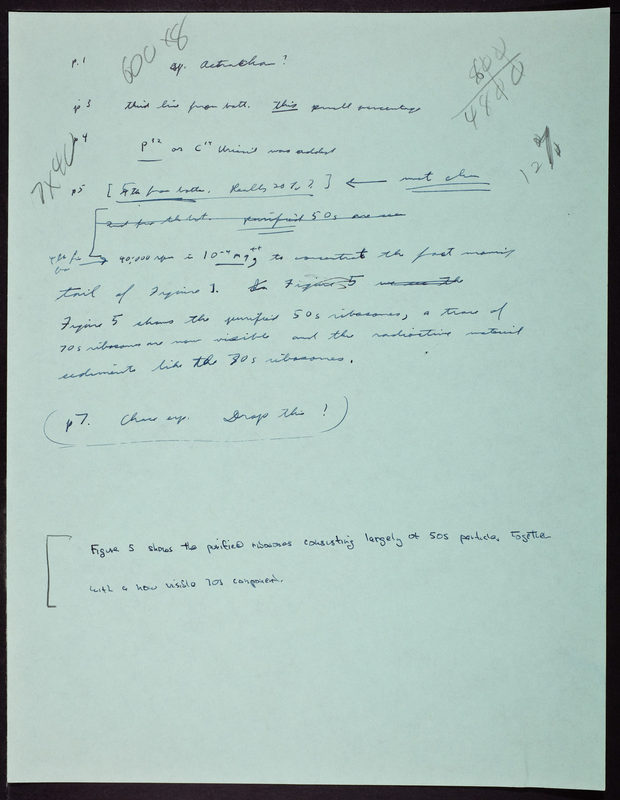 p.1 600 x8
sp. ? 800
p 3 third line from bott. This small percentage 4800
7x40 p4 P32 or C14 Uracil was added 12%
p5 [ 5th from bottom. Really 20 % ? ] ← not clear
2nd from the bot. purified 50s are
40,000 rpm in 10-4 Mg++ to concentrate the fast moving
tail of Figure 3. Figure 5 the
Figure 5 shows the purified 50s ribosomes, a trace of
70s ribosomes are now visible and the radioactive material
sediments like the 70s ribosomes.
( p7. exp. Drop this ! )
Figure 5 shows the purified ribosomes consisting largely of 50s particles, together
with a now visible 70s component.